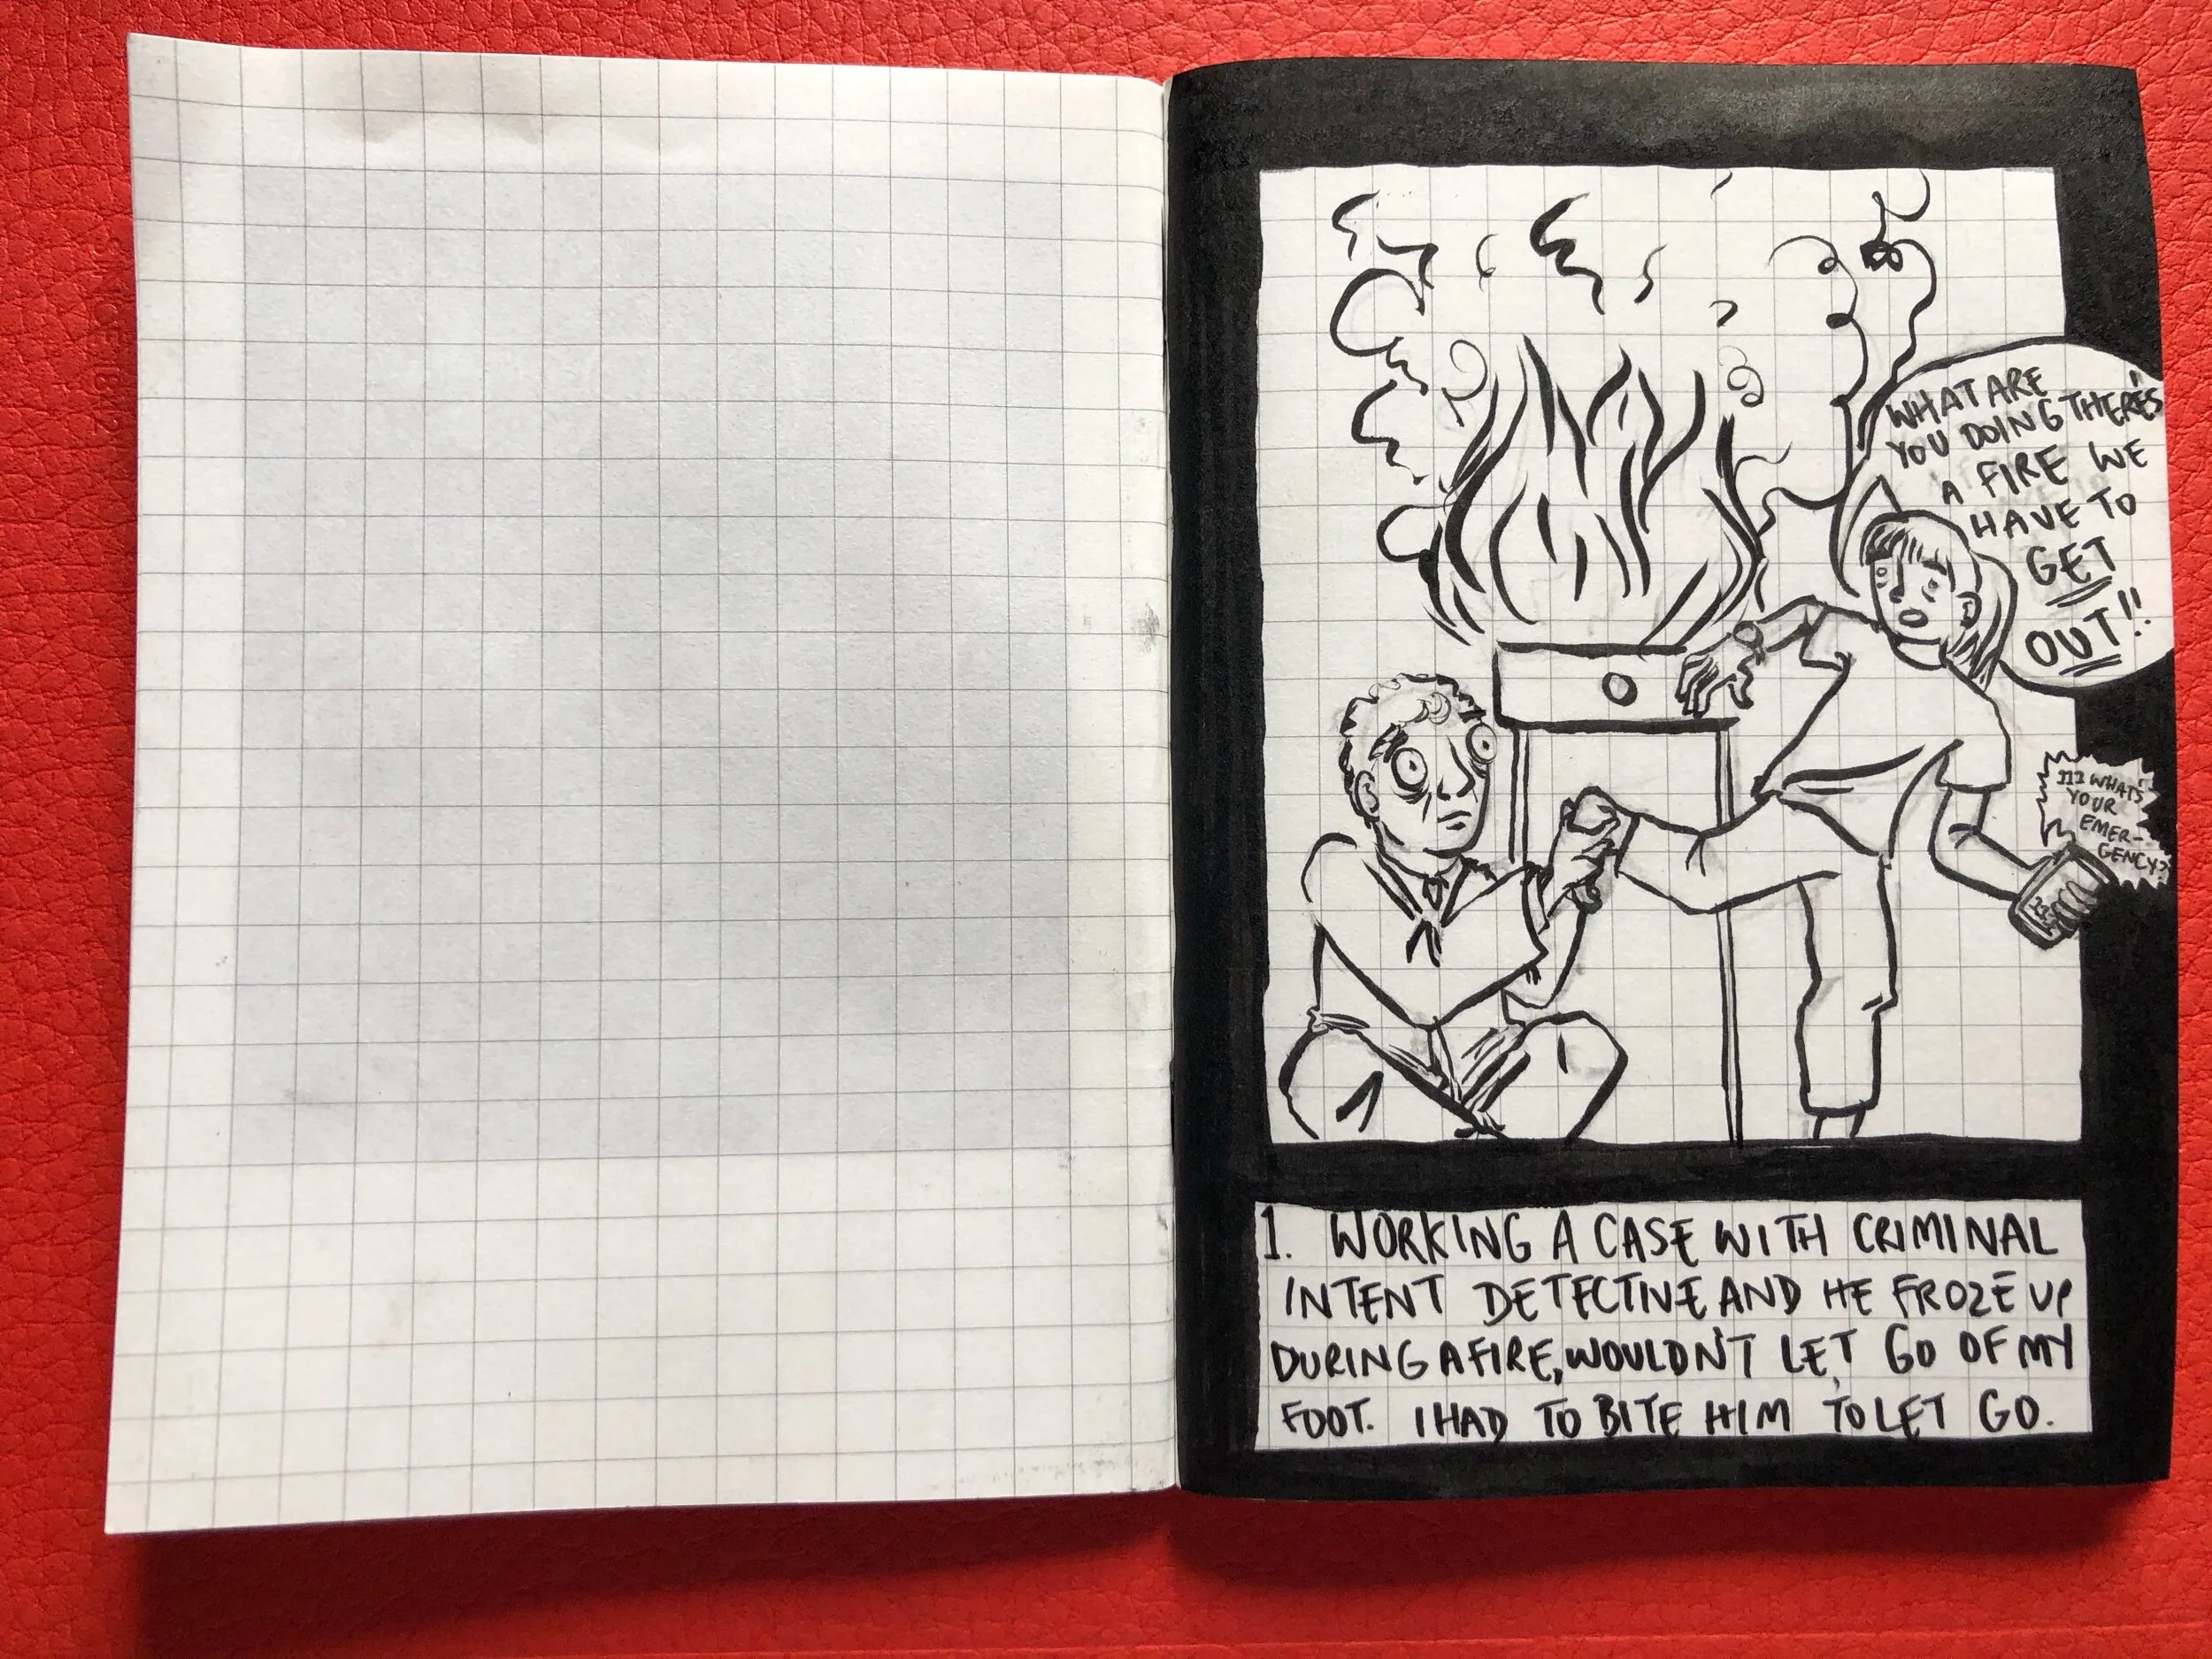 WHAT ARE
YOU DOING THERE'S
A FIRE WE
HAVE TO
GET
OUT!!
111 WHATS
YOUR
EMER-
GENCY?
1. WORKING A CASE WITH CRIMINAL
INTENT DETECTIVE AND HE FROZE UP
DURING A FIRE, WOULDN'T LET GO OF MY
FOOT. I HAD TO BITE HIM TO LET GO.